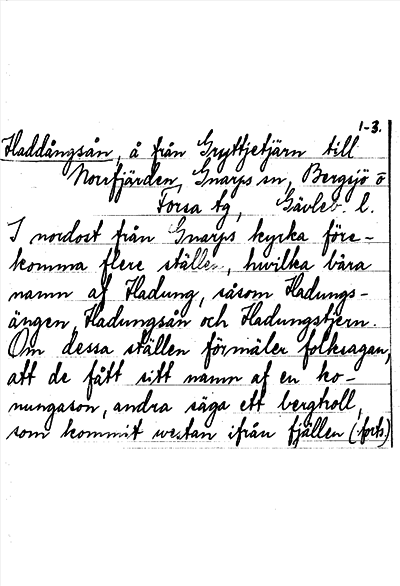 1-3.
Haddångsån, å från Gryttjetjärn till
Norrfjärden, Gnarps sn, Bergsjö o
Forsa tg, Gävleb. l.
I nordost från Gnarps kyrka före-
komma flere ställen, hwilka bära
namn af Hadung, såsom Hadungs-
ängen, Hadungsån och Hadungstjern.
Om dessa ställen förmäler folksagan,
att de fått sitt namn af en ko-
nungason, andra säga ett bergtroll,
som kommit westan ifrån fjällen (forts)